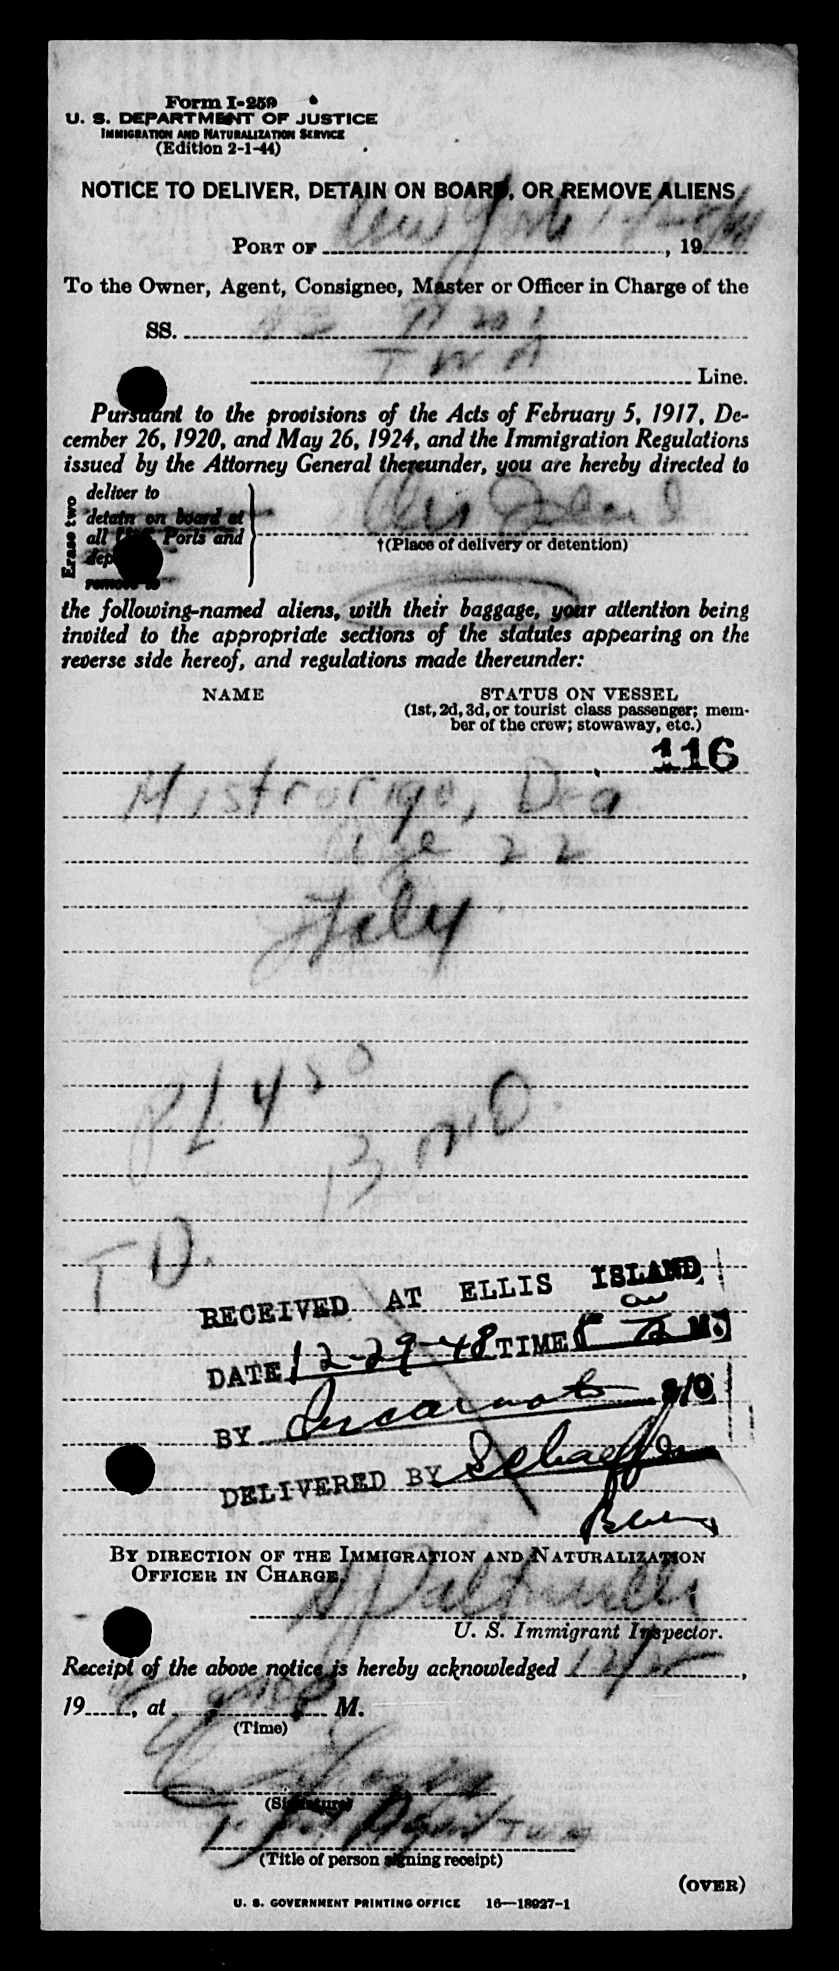 Form I-259
U. S. DEPARTMENT OF JUSTICE
IMMIGRATION AND NATURALIZATION SERVICE
(Edition 2-1-44)
NOTICE TO DELIVER, DETAIN ON BOARD, OR REMOVE ALIENS
PORT OF New York, 19
To the Owner, Agent, Consignee, Master or Officer in Charge of the
SS.
TWA Line.
Pursuant to the provisions of the Acts of February 5, 1917, De-
cember 26, 1920, and May 26, 1924, and the Immigration Regulations
issued by the Attorney General thereunder, you are hereby directed to
Erase two
deliver to
detain on board at
all U.S. Ports and
remove to
Ellis Island
†(Place of delivery or detention)
the following-named aliens, with their baggage, your attention being
invited to the appropriate sections of the statutes appearing on the
reverse side hereof, and regulations made thereunder:
NAME
STATUS ON VESSEL
(1st, 2d, 3d, or tourist class passenger; mem-
ber of the crew; stowaway, etc.)
116
Mistrorigo, Dea
age 22
Italy
PL 450
BND
TD.
RECEIVED AT ELLIS ISLAND
DATE 12-29-48 TIME M.
BY
DELIVERED BY
BY DIRECTION OF THE IMMIGRATION AND NATURALIZATION
OFFICER IN CHARGE.
U. S. Immigrant Inspector.
Receipt of the above notice is hereby acknowledged
19, at M.
(Time)
(Signature)
(Title of person signing receipt)
(OVER)
U. S. GOVERNMENT PRINTING OFFICE 16—18027-1